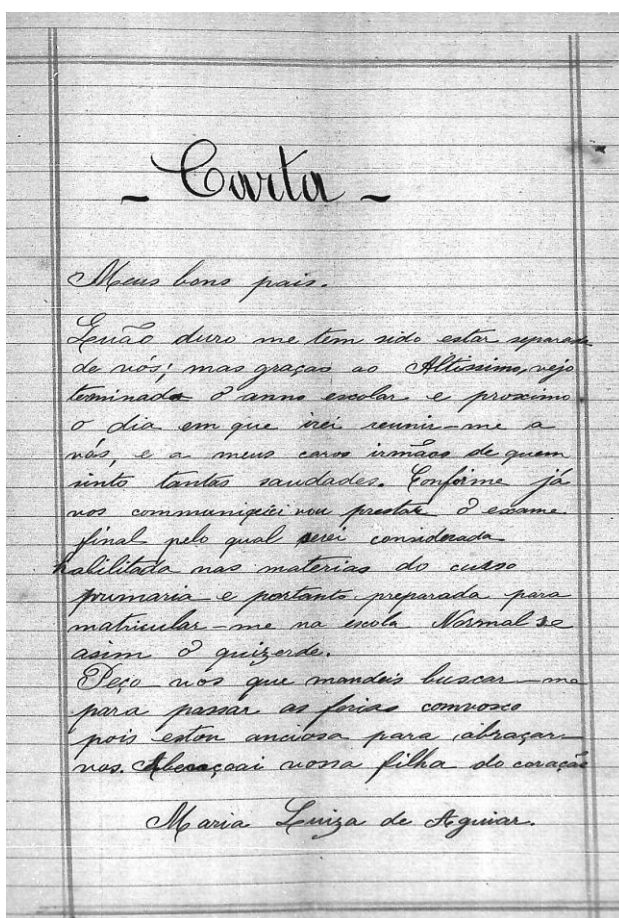 - Carta -
Meus bons pais.
Quão duro me tem sido estar separada
de vós; mas graças ao Altissimo, vejo
terminado o anno escolar e proximo
o dia em que irei reunir-me a
vós, e a meus caros irmãos de quem
sinto tantas saudades. Confórme já
vos communiquei vou prestar o exame
final pelo qual serei considerada
habilitada nas materias do curso
primario e portanto preparada para
matricular-me na escola Normal se
asim o quizerde.
Peço vos que mandeis buscar-me
para passar as ferias comvosco
pois estou anciosa para abraçar-
vos. Abençoai vossa filha do coração
Maria Luiza de Aguiar.